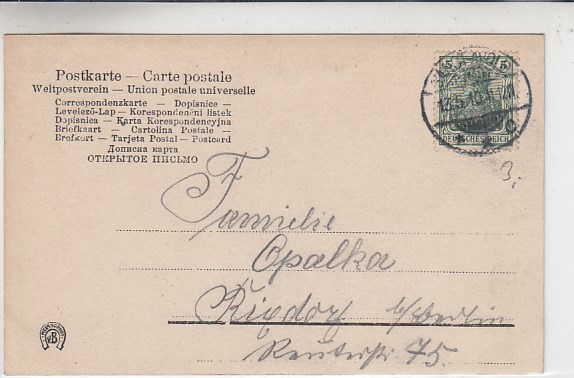 Postkarte — Carte postale
Weltpostverein — Union postale universelle
Correspondenzkarte — Dopisnice —
Levelező-Lap — Korespondenční listek
Dopisnica — Karta Korespondencyjna
Briefkaart — Cartolina Postale —
Brefkort — Tarjeta Postal — Postcard
Дописна карта
ОТКРЫТОЕ ПИСЬМО
5 5
DEUTSCHES REICH
3.-
Familie
Opalka
Rixdorf b/Berlin
Reuterstr. 75.